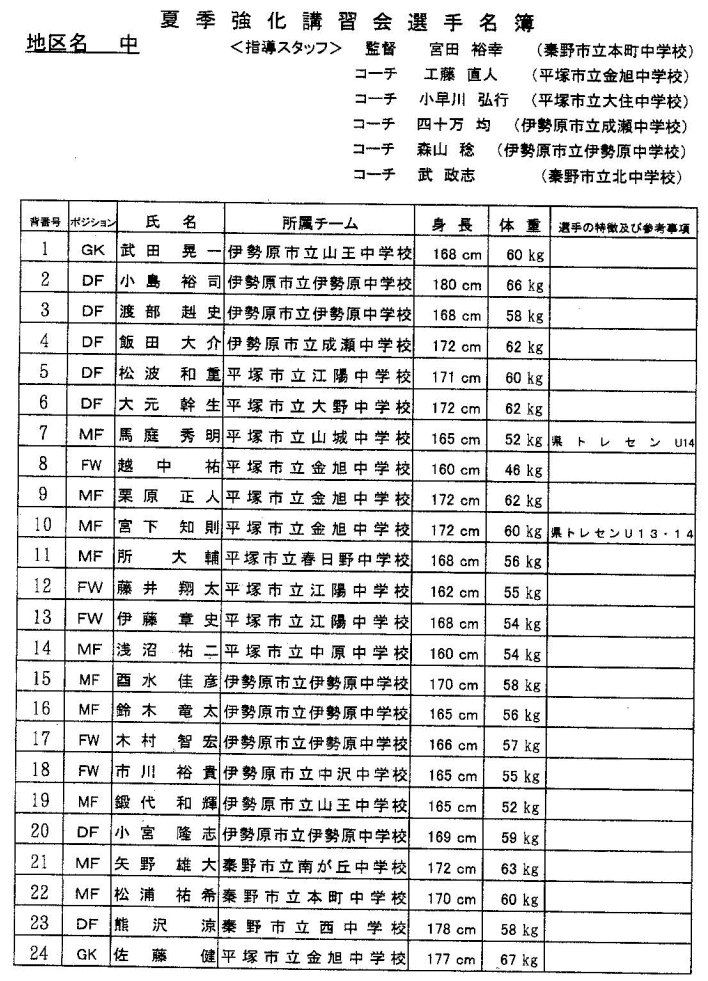 夏季強化講習会選手名簿
地区名 中 <指導スタッフ> 監督 宮田 裕幸 (秦野市立本町中学校)
コーチ 工藤 直人 (平塚市立金旭中学校)
コーチ 小早川 弘行 (平塚市立大住中学校)
コーチ 四十万 均 (伊勢原市立成瀬中学校)
コーチ 森山 稔 (伊勢原市立伊勢原中学校)
コーチ 武 政志 (秦野市立北中学校)
背番号 ポジション 氏名 所属チーム 身長 体重 選手の特徴及び参考事項
1 GK 武田 晃一 伊勢原市立山王中学校 168 cm 60 kg
2 DF 小島 裕司 伊勢原市立伊勢原中学校 180 cm 66 kg
3 DF 渡部 赳史 伊勢原市立伊勢原中学校 168 cm 58 kg
4 DF 飯田 大介 伊勢原市立成瀬中学校 172 cm 62 kg
5 DF 松波 和重 平塚市立江陽中学校 171 cm 60 kg
6 DF 大元 幹生 平塚市立大野中学校 172 cm 62 kg
7 MF 馬庭 秀明 平塚市立山城中学校 165 cm 52 kg 県トレセン U14
8 FW 越中 祐 平塚市立金旭中学校 160 cm 46 kg
9 MF 栗原 正人 平塚市立金旭中学校 172 cm 62 kg
10 MF 宮下 知則 平塚市立金旭中学校 172 cm 60 kg 県トレセンU13・14
11 MF 所 大輔 平塚市立春日野中学校 168 cm 56 kg
12 FW 藤井 翔太 平塚市立江陽中学校 162 cm 55 kg
13 FW 伊藤 章史 平塚市立江陽中学校 168 cm 54 kg
14 MF 浅沼 祐二 平塚市立中原中学校 160 cm 54 kg
15 MF 酉水 佳彦 伊勢原市立伊勢原中学校 170 cm 58 kg
16 MF 鈴木 竜太 伊勢原市立伊勢原中学校 165 cm 56 kg
17 FW 木村 智宏 伊勢原市立伊勢原中学校 166 cm 57 kg
18 FW 市川 裕貴 伊勢原市立中沢中学校 165 cm 55 kg
19 MF 鍛代 和輝 伊勢原市立山王中学校 165 cm 52 kg
20 DF 小宮 隆志 伊勢原市立伊勢原中学校 169 cm 59 kg
21 MF 矢野 雄大 秦野市立南が丘中学校 172 cm 63 kg
22 MF 松浦 祐希 秦野市立本町中学校 170 cm 60 kg
23 DF 熊沢 涼 秦野市立西中学校 178 cm 58 kg
24 GK 佐藤 健 平塚市立金旭中学校 177 cm 67 kg